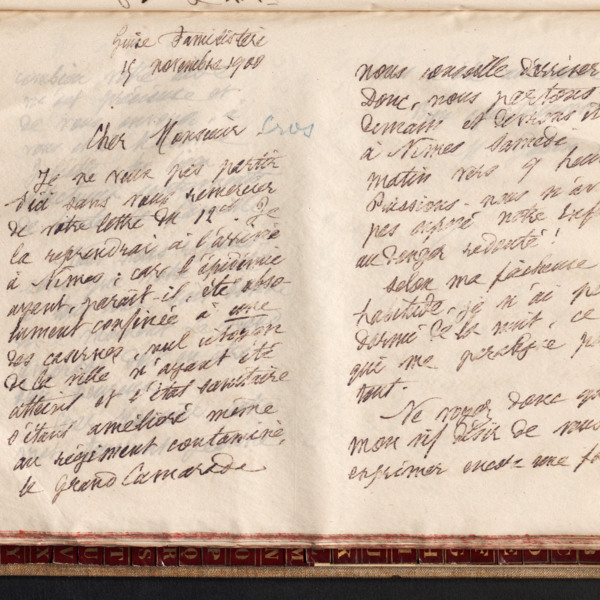 Guise Familistère
15 novembre 1900
Cher Monsieur Cros
Je ne veux pas partir
d'ici sans vous remercier
de votre lettre du 12 ct Je
la reprendrai à l'arrivée
à Nîmes; car l'épidémie
ayant, paraît-il, été abso-
lument confinée à une
des casernes, nul citoyen
de la ville n'ayant été
atteint et l'état sanitaire
s'étant amélioré même
au régiment contaminé,
le Grand Camarade
nous conseille d'arriver
Donc, nous partons
demain et devrons
à Nîmes samedi
matin vers 9 heu
Puissions-nous n'av
pas exposé notre
au danger redouté!
Selon ma fâcheuse
habitude, je n'ai p
dormi de la nuit, ce
qui me paralyse
tout.
Ne voyez donc
mon vif désir de vous
exprimer une fo